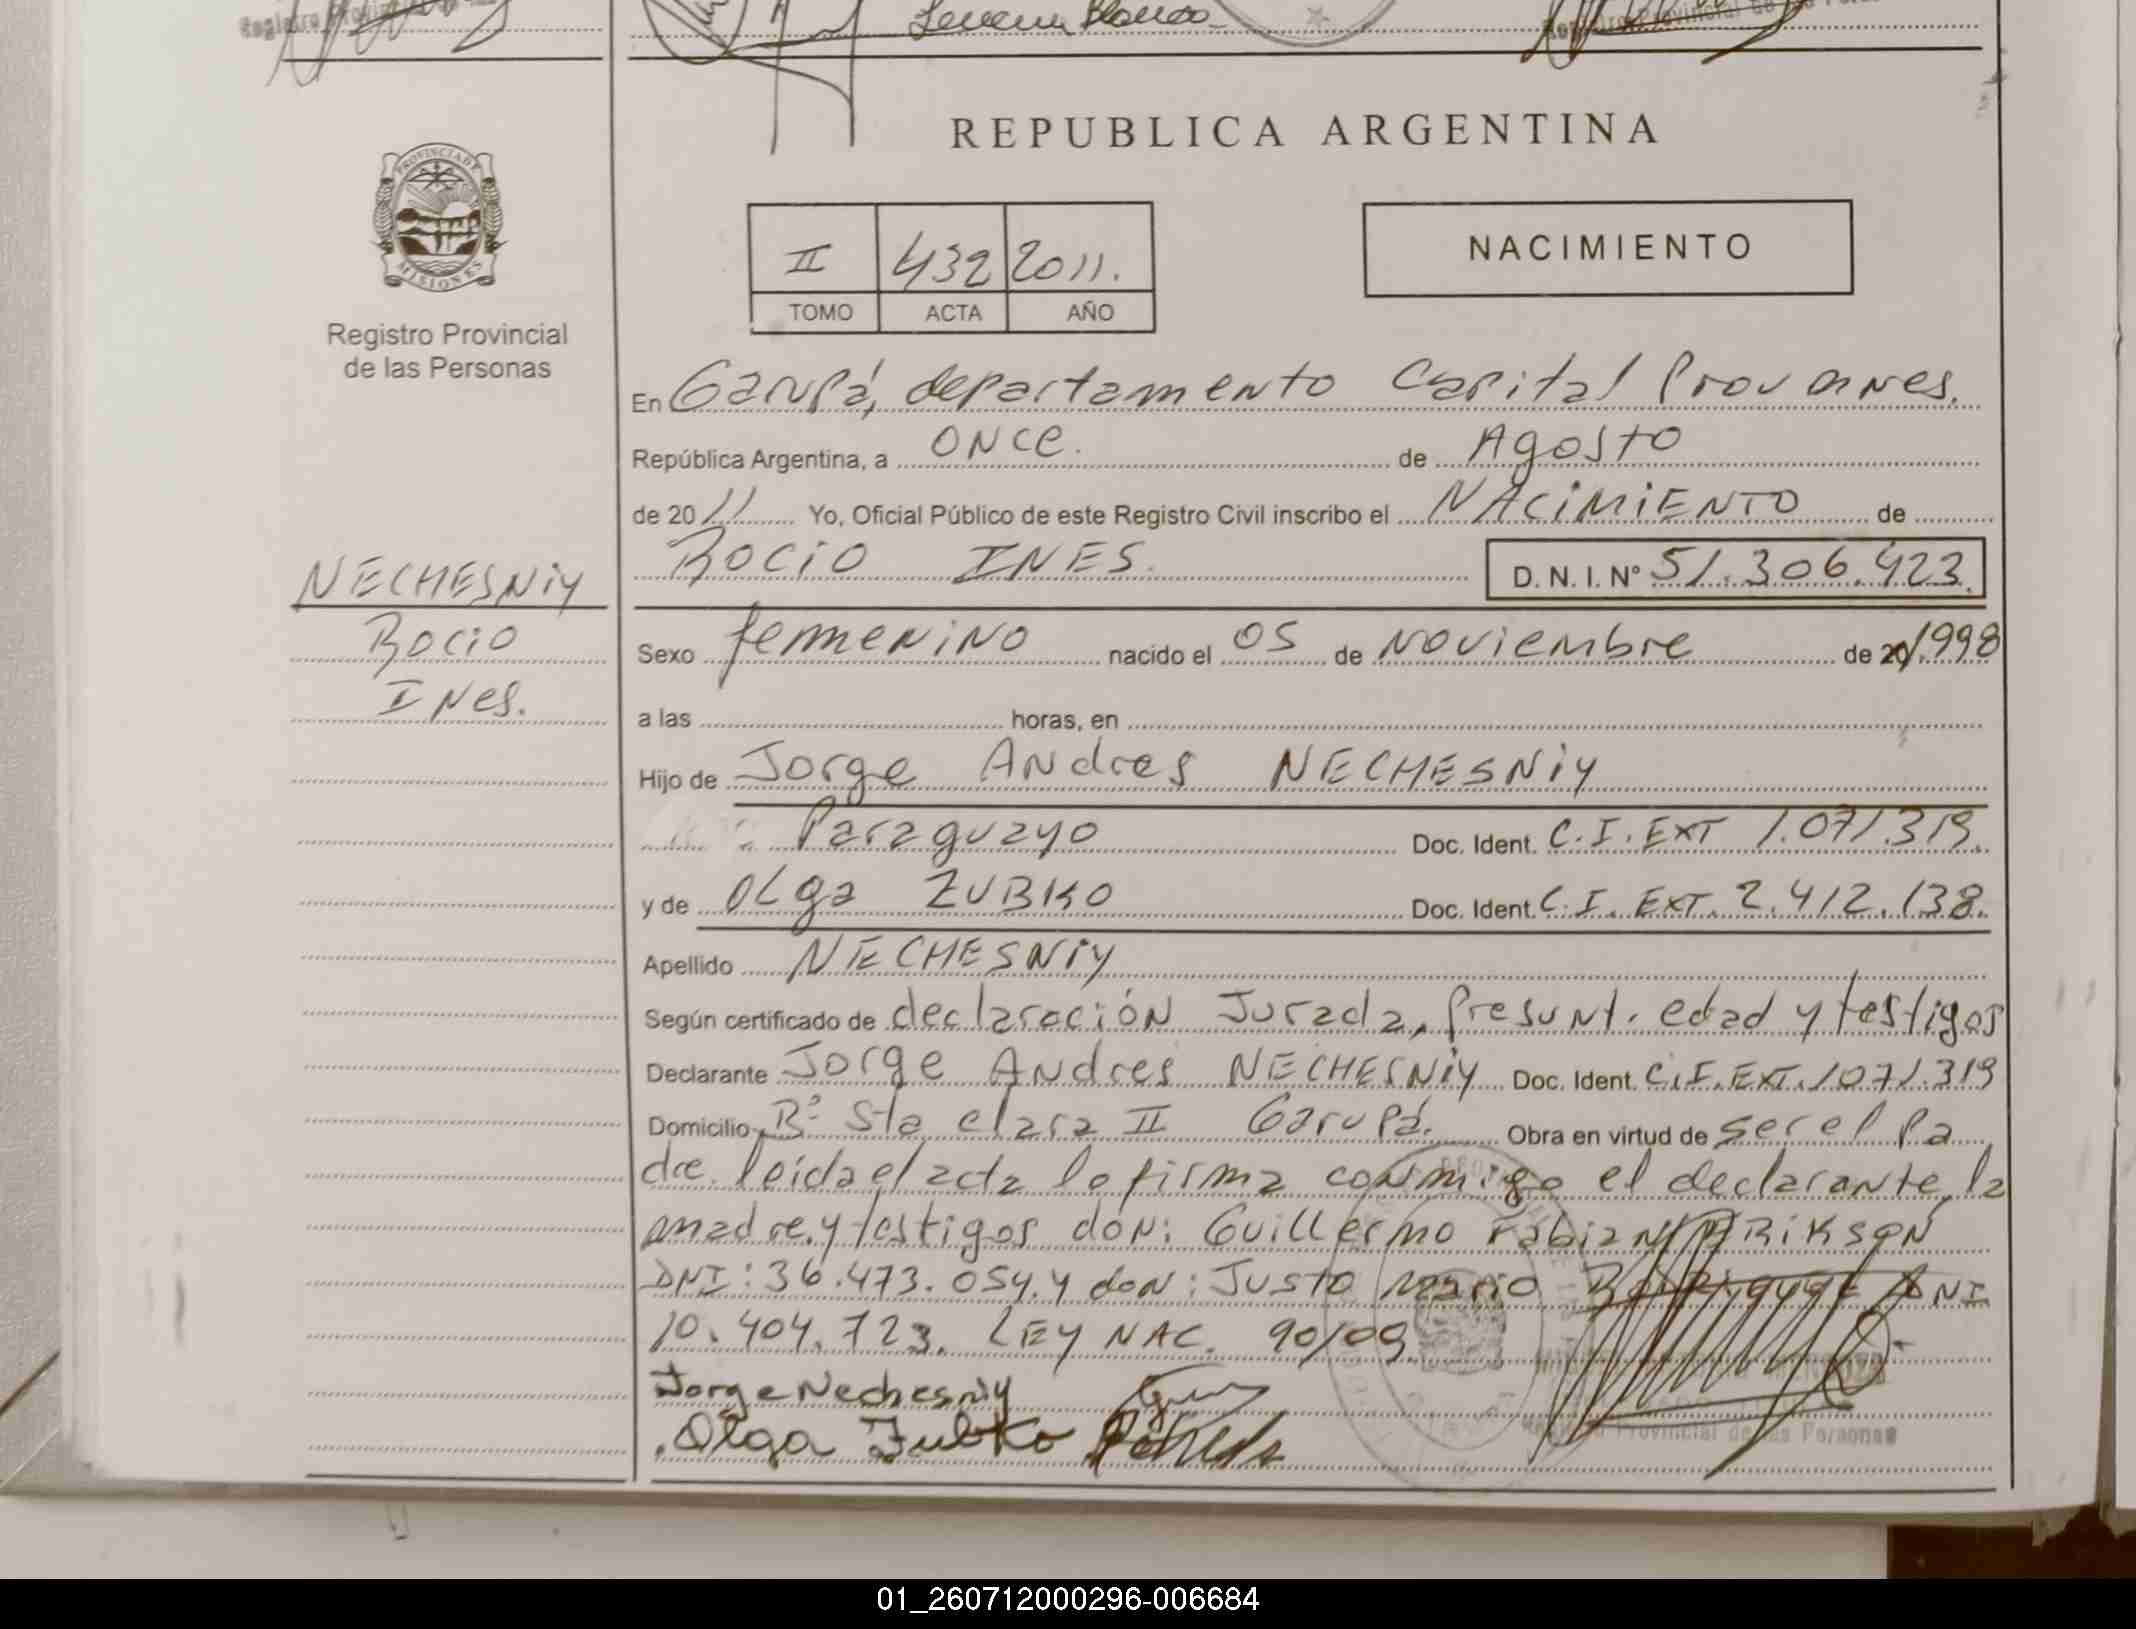 Registro Provincial de las
PROVINCIA DE
MISIONES
Registro Provincial
de las Personas
NECHESNiy
Rocio
INes.
REPUBLICA ARGENTINA
II 432 2011.
TOMO ACTA AÑO
NACIMIENTO
En Garupá, departamento Capital Prov. Misiones.
República Argentina, a ONce. de Agosto
de 20 11 Yo, Oficial Público de este Registro Civil inscribo el NACiMiENTO de
ROCiO INES. D. N. I. Nº 51.306.423.
Sexo femenino nacido el 05 de Noviembre de 20 1998
a las horas, en
Hijo de Jorge Andres NECHESNiy
Paraguayo Doc. Ident. C.I. EXT 1.071.319.
y de OLga ZUBKO Doc. Ident. C.I. EXT. 2.412.138.
Apellido NECHESNiy
Según certificado de declaración Jurada, Presunt. edad y testigos
Declarante Jorge Andres NECHESNiy Doc. Ident. C.I. EXT. 1071.319
Domicilio Bº Sta clara II Garupá. Obra en virtud de ser el Pa
dre. leida el acta la firma conmigo el declarante, la
madre, y testigos don: Guillermo Fabian ARIKSON
DNI: 36.473.054. y don: Justo Mario DNI
10.404.723. LEY NAC. 90/09.
Jorge Nechesniy
Olga Zubko
Registro Provincial de las Personas
01_260712000296-006684